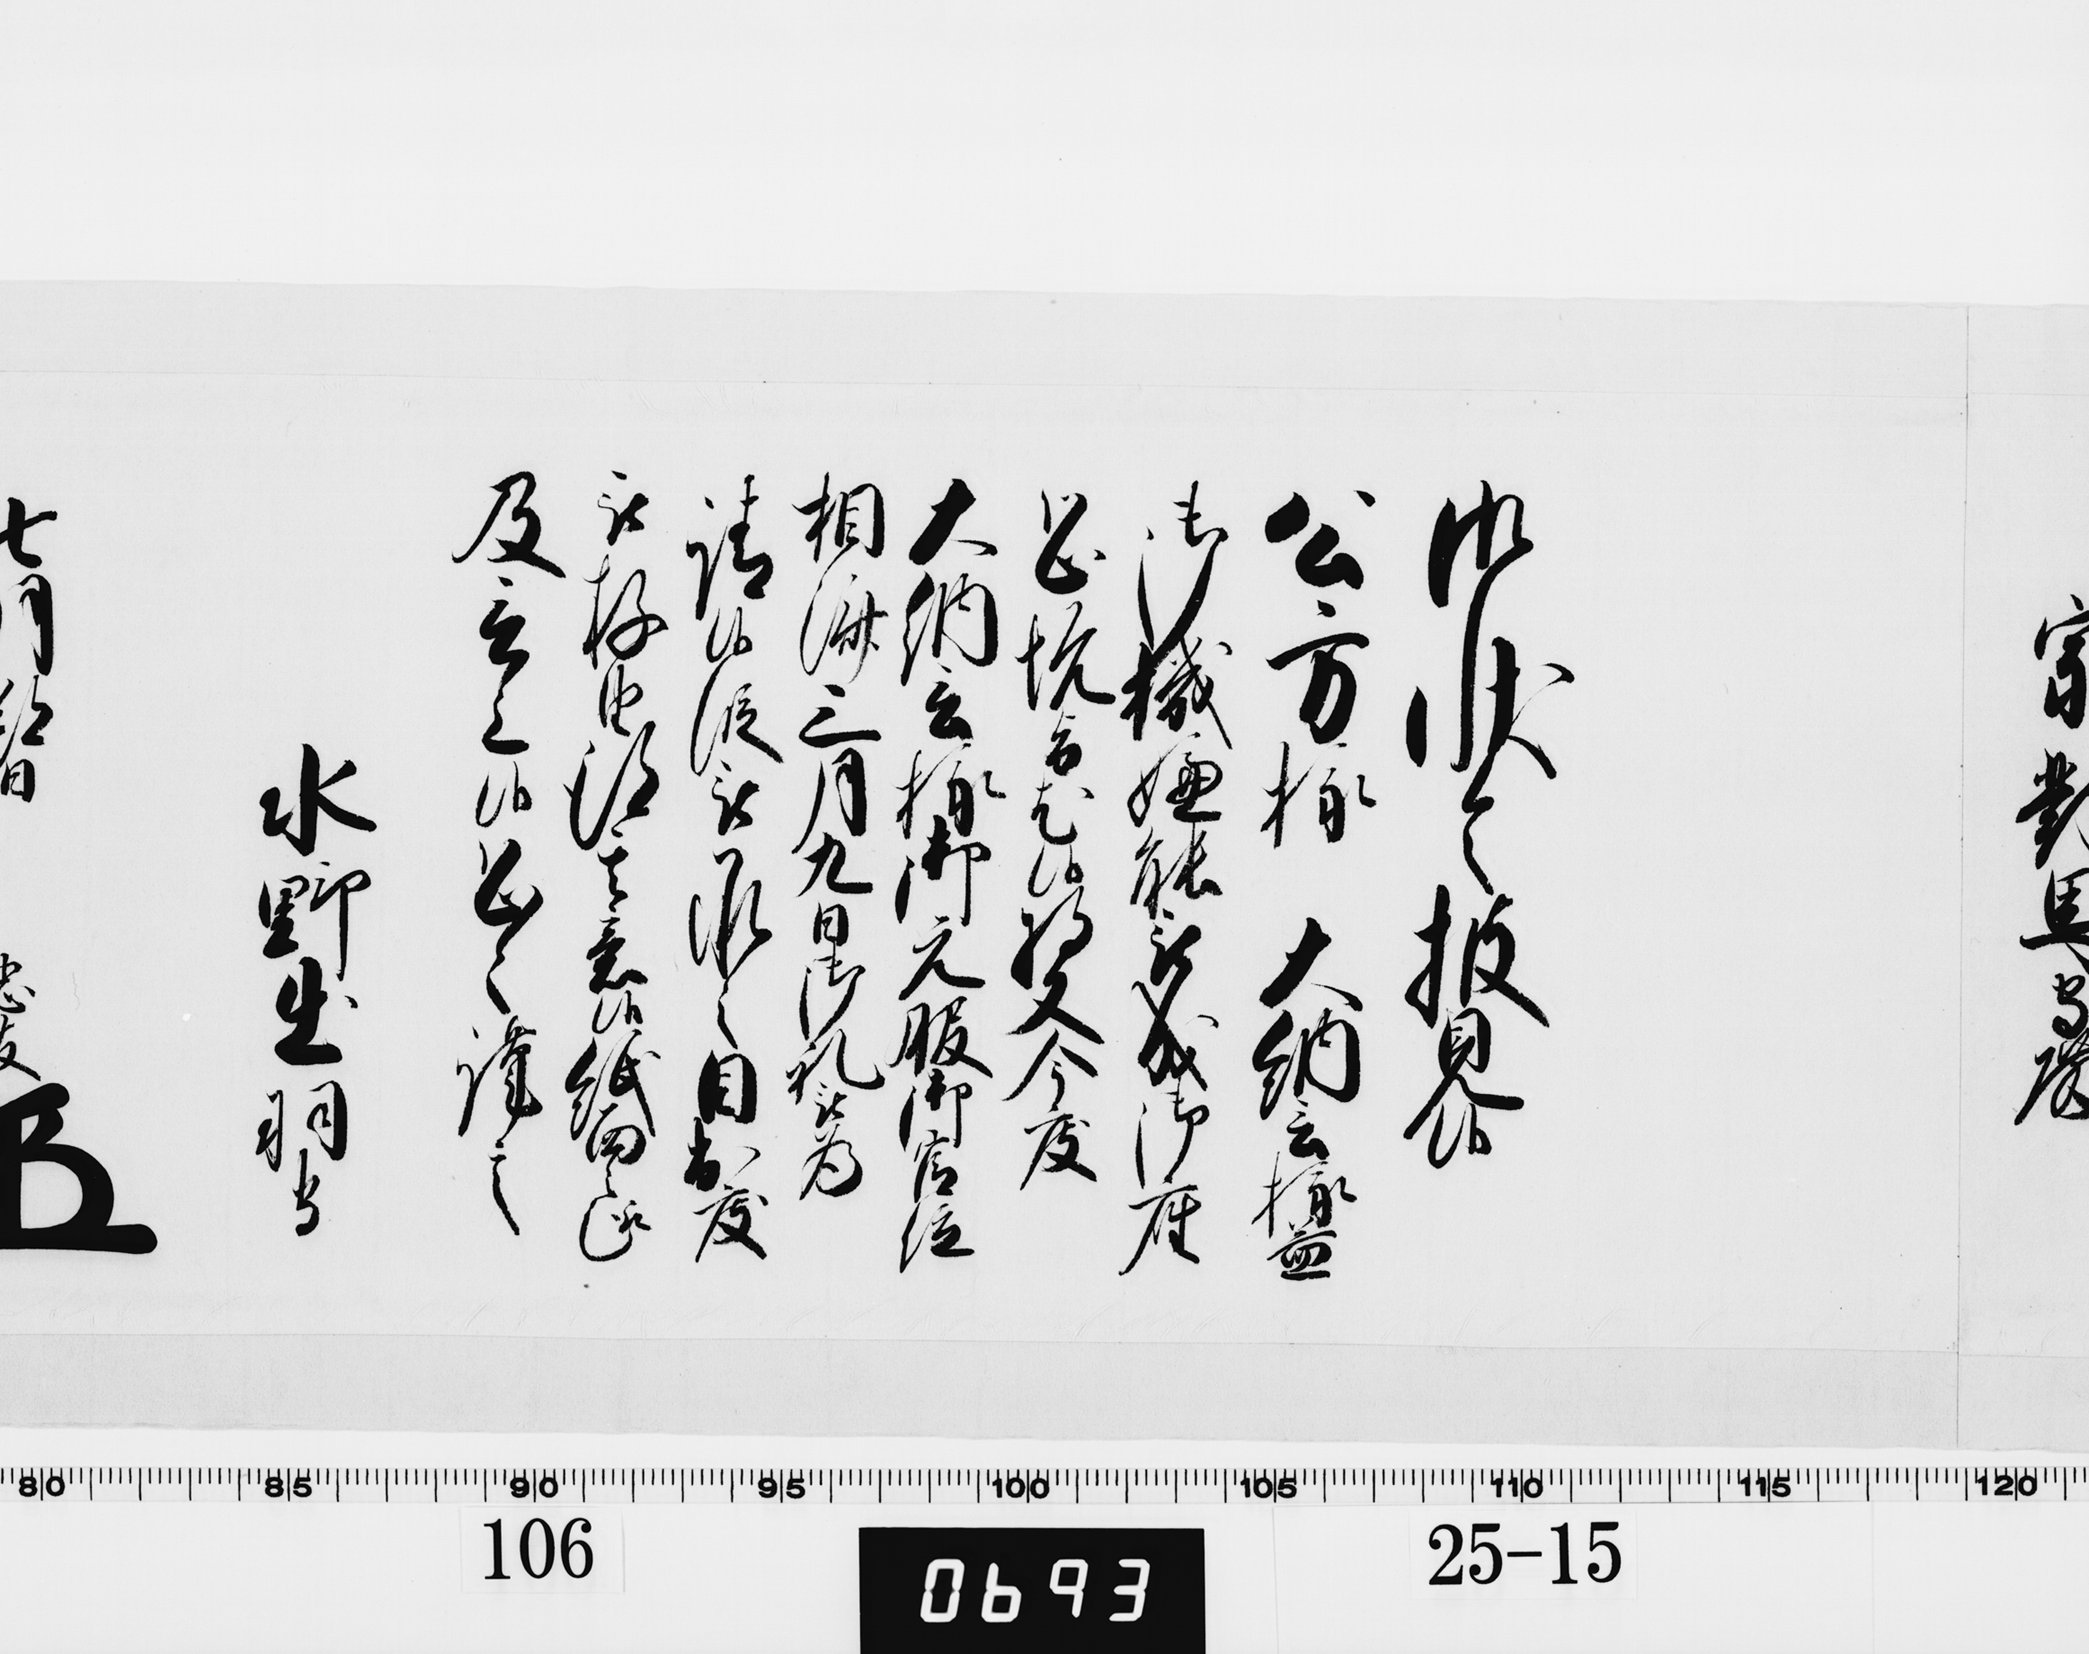 宗對馬守殿
御状令披見候
公方様 大納言様益
御機嫌能被成御座
恐悦旨尤候将又今度
大納言様御元服御官位
相済三月九日御礼被為
請候段被承之目出度
被存由得其意候紙面之趣
及言上候恐々謹言
水野出羽守
七月
忠友
80 85 90 95 100 105 110 115 120
106 0693 25-15